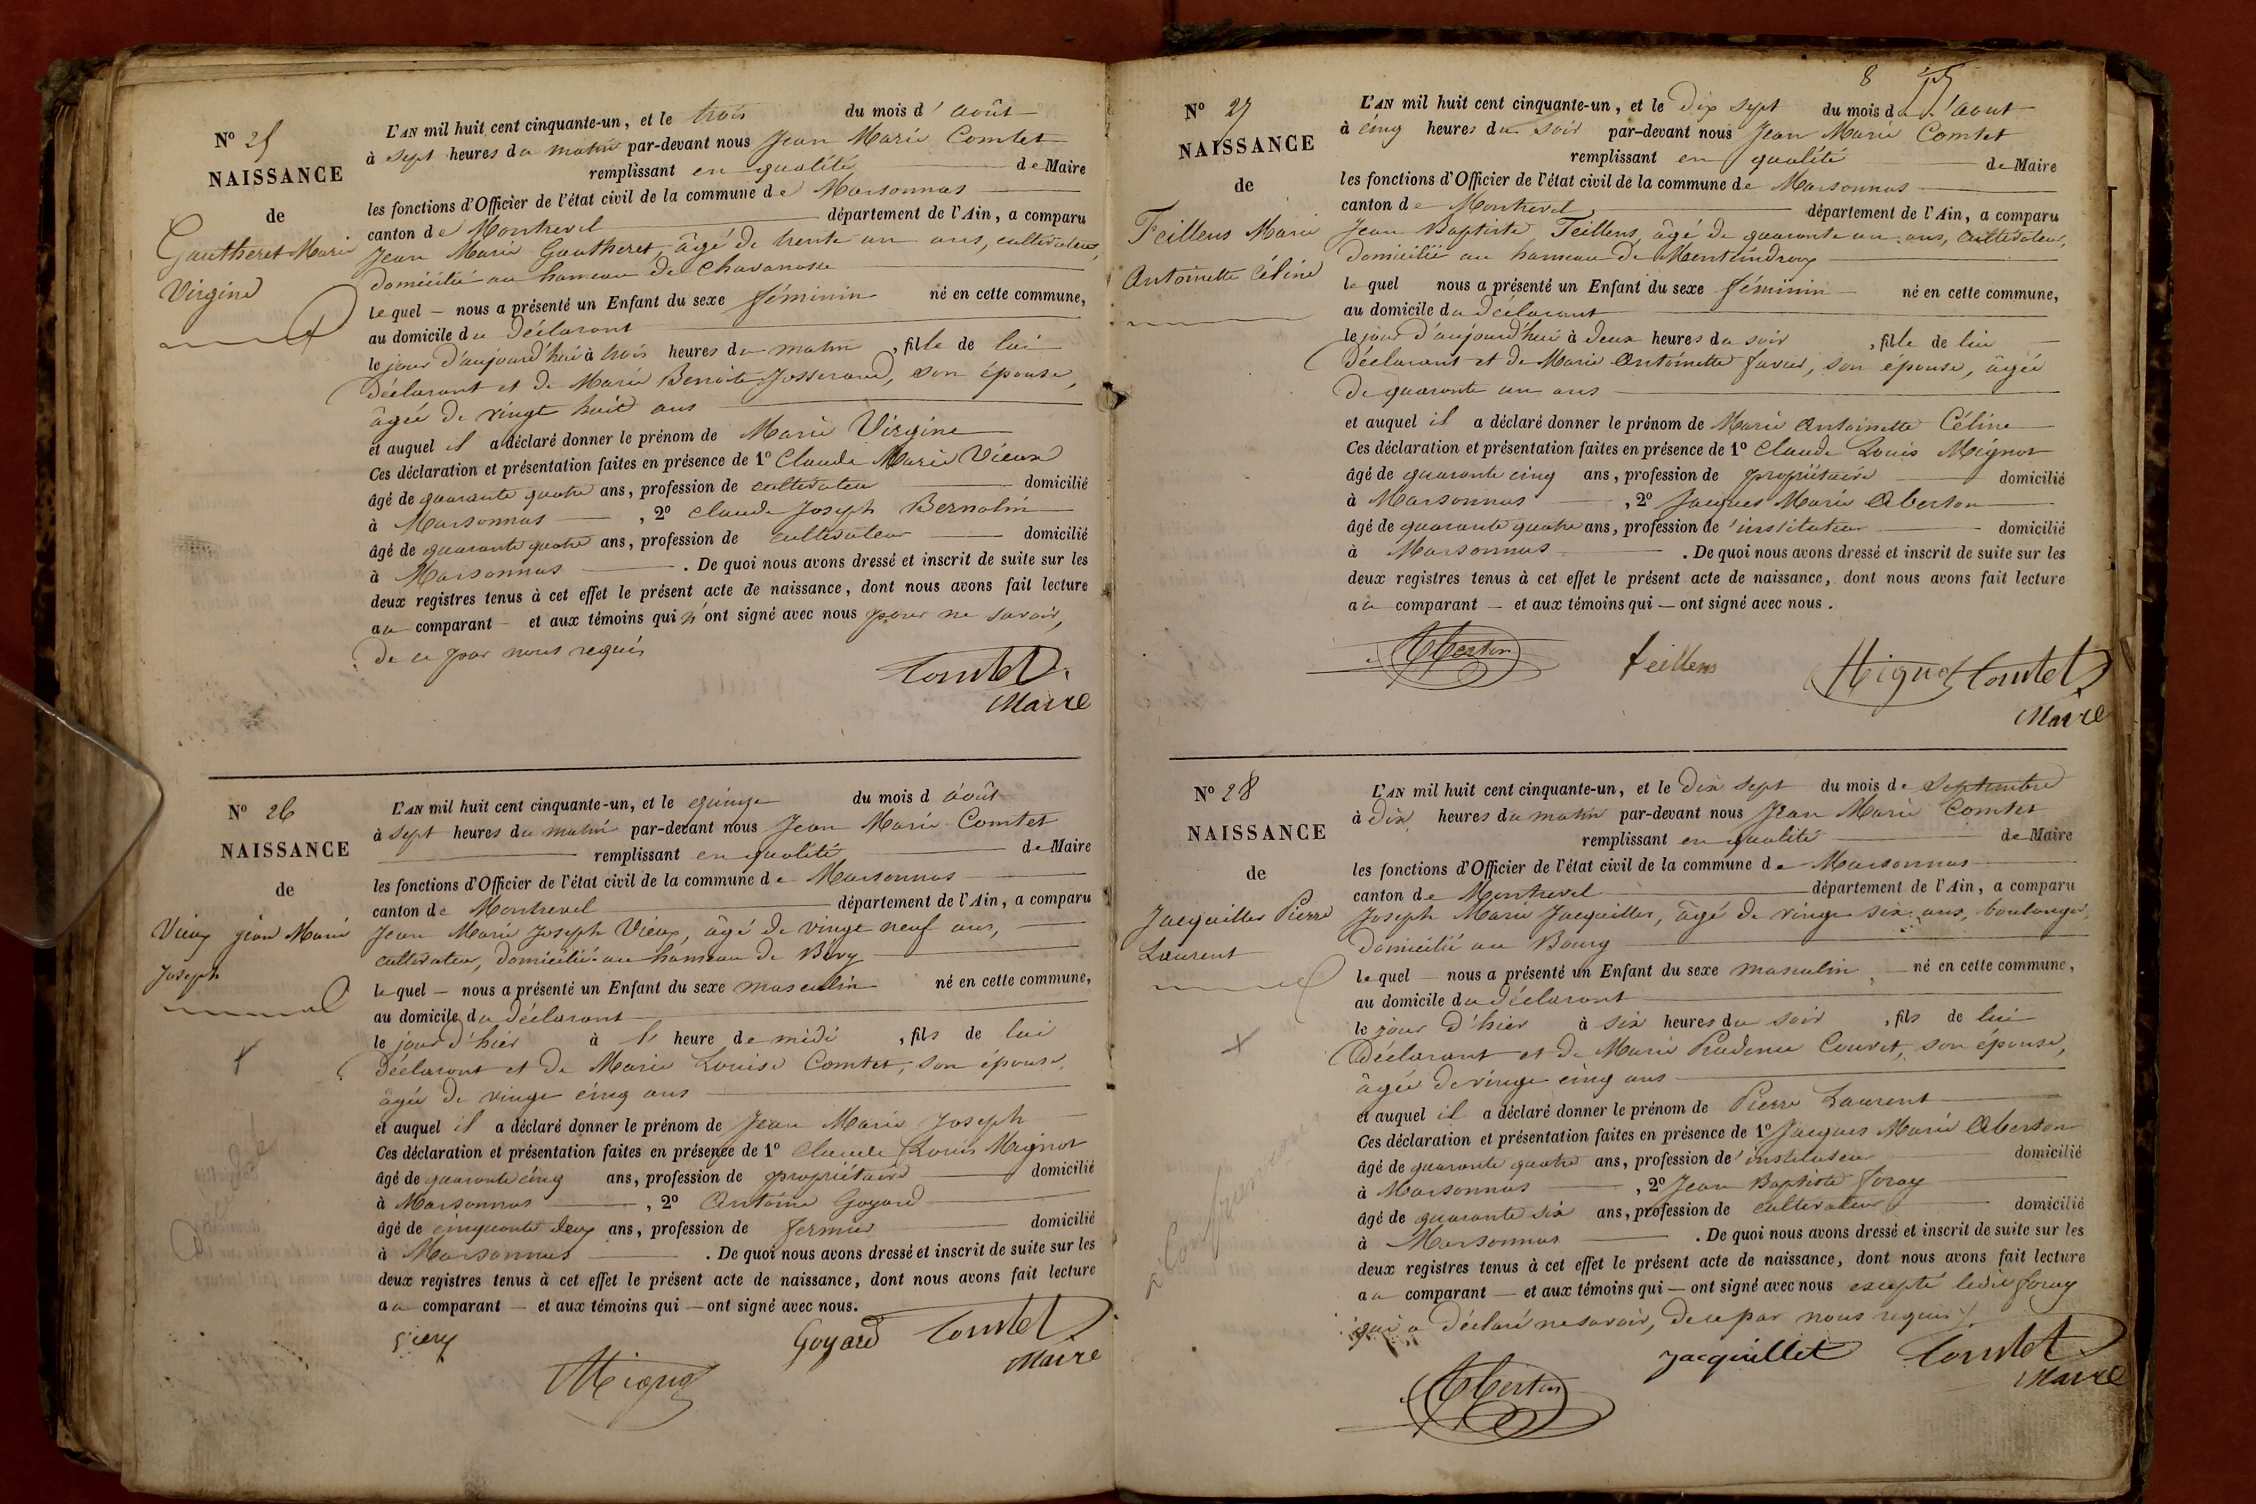 N° 25
NAISSANCE
de
Gautheret Marie
Virginie
L'AN mil huit cent cinquante-un, et le trois du mois d'août
à sept heures du matin par-devant nous Jean Marie Comtet
remplissant en qualité de Maire
les fonctions d'Officier de l'état civil de la commune de Marsonnas
canton de Montrevel département de l'Ain, a comparu
Jean Marie Gautheret, âgé de trente un ans, cultivateur,
domicilié au hameau de Chavanosse
lequel — nous a présenté un Enfant du sexe féminin né en cette commune,
au domicile du déclarant
le jour d'aujourd'hui à trois heures du matin, fille de lui
déclarant et de Marie Benoite Josserand, son épouse,
âgée de vingt huit ans
et auquel il a déclaré donner le prénom de Marie Virginie
Ces déclaration et présentation faites en présence de 1° Claude Marie Vieux
âgé de quarante quatre ans, profession de cultivateur domicilié
à Marsonnas, 2° Claude Joseph Bernolin
âgé de quarante quatre ans, profession de cultivateur domicilié
à Marsonnas. De quoi nous avons dressé et inscrit de suite sur les
deux registres tenus à cet effet le présent acte de naissance, dont nous avons fait lecture
au comparant — et aux témoins qui n'ont signé avec nous pour ne savoir,
de ce par nous requis
Comtet
Maire
N° 26
NAISSANCE
de
Vieux Jean Marie
Joseph
L'AN mil huit cent cinquante-un, et le quinze du mois d'août
à sept heures du matin par-devant nous Jean Marie Comtet
remplissant en qualité de Maire
les fonctions d'Officier de l'état civil de la commune de Marsonnas
canton de Montrevel département de l'Ain, a comparu
Jean Marie Joseph Vieux, âgé de vingt neuf ans,
cultivateur, domicilié au hameau de Bévy
lequel — nous a présenté un Enfant du sexe masculin né en cette commune,
au domicile du déclarant
le jour d'hier à l' heure de midi, fils de lui
déclarant et de Marie Louise Comtet, son épouse,
âgée de vingt cinq ans
et auquel il a déclaré donner le prénom de Jean Marie Joseph
Ces déclaration et présentation faites en présence de 1° Claude Louis Mignot
âgé de quarante cinq ans, profession de propriétaire domicilié
à Marsonnas, 2° Antoine Goyard
âgé de cinquante deux ans, profession de fermier domicilié
à Marsonnas. De quoi nous avons dressé et inscrit de suite sur les
deux registres tenus à cet effet le présent acte de naissance, dont nous avons fait lecture
au comparant — et aux témoins qui — ont signé avec nous.
Goyard Comtet
Maire
Mignot
8
N° 27
NAISSANCE
de
Feillens Marie
Antoinette Céline
L'AN mil huit cent cinquante-un, et le dix sept du mois d'août
à cinq heures du soir par-devant nous Jean Marie Comtet
remplissant en qualité de Maire
les fonctions d'Officier de l'état civil de la commune de Marsonnas
canton de Montrevel département de l'Ain, a comparu
Jean Baptiste Feillens, âgé de quarante un ans, cultivateur,
domicilié au hameau de Montindroux
lequel nous a présenté un Enfant du sexe féminin né en cette commune,
au domicile du déclarant
le jour d'aujourd'hui à deux heures du soir, fille de lui
déclarant et de Marie Antoinette favier, son épouse, âgée
de quarante un ans
et auquel il a déclaré donner le prénom de Marie Antoinette Céline
Ces déclaration et présentation faites en présence de 1° Claude Louis Mignot
âgé de quarante cinq ans, profession de propriétaire domicilié
à Marsonnas, 2° Jacques Marie Aberton
âgé de quarante quatre ans, profession d'instituteur domicilié
à Marsonnas. De quoi nous avons dressé et inscrit de suite sur les
deux registres tenus à cet effet le présent acte de naissance, dont nous avons fait lecture
au comparant — et aux témoins qui — ont signé avec nous.
Aberton feillens Mignot Comtet
Maire
N° 28
NAISSANCE
de
Jacquillet Pierre
Laurent
L'AN mil huit cent cinquante-un, et le dix sept du mois de Septembre
à dix heures du matin par-devant nous Jean Marie Comtet
remplissant en qualité de Maire
les fonctions d'Officier de l'état civil de la commune de Marsonnas
canton de Montrevel département de l'Ain, a comparu
Joseph Marie Jacquillet, âgé de vingt six ans, boulanger,
domicilié au Bourg
lequel — nous a présenté un Enfant du sexe masculin né en cette commune,
au domicile du déclarant
le jour d'hier à six heures du soir, fils de lui
déclarant et de Marie Prudence Couvet, son épouse,
âgée de vingt cinq ans
et auquel il a déclaré donner le prénom de Pierre Laurent
Ces déclaration et présentation faites en présence de 1° Jacques Marie Aberton
âgé de quarante quatre ans, profession d'instituteur domicilié
à Marsonnas, 2° Jean Baptiste foray
âgé de quarante six ans, profession de cultivateur domicilié
à Marsonnas. De quoi nous avons dressé et inscrit de suite sur les
deux registres tenus à cet effet le présent acte de naissance, dont nous avons fait lecture
au comparant — et aux témoins qui — ont signé avec nous excepté ledit foray
qui a déclaré ne savoir, de ce par nous requis.
Jacquillet Comtet
Maire
Aberton